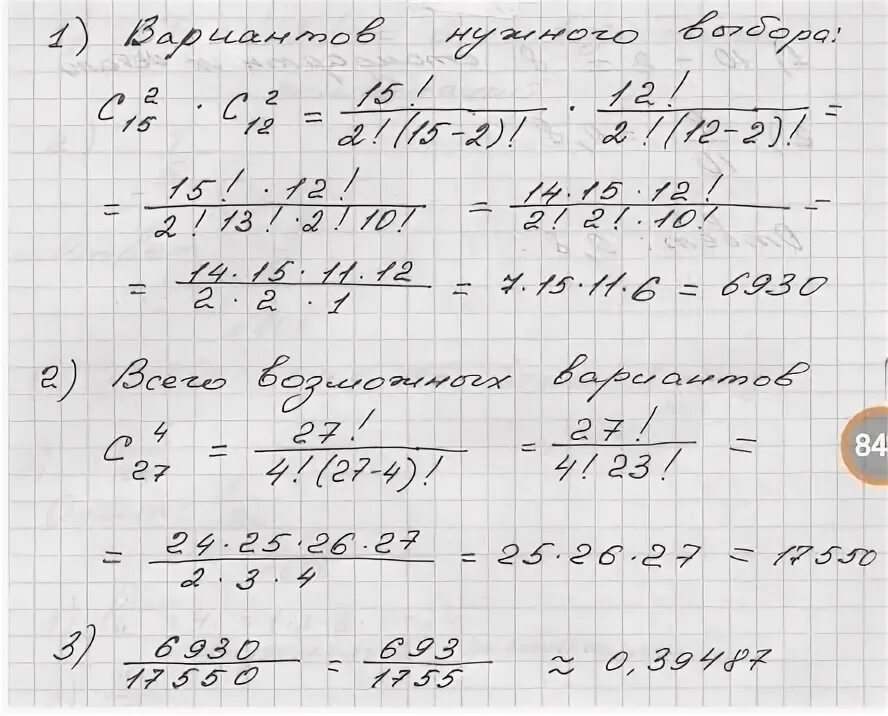 1) Вариантов нужного выбора:
C₁₅² · C₁₂² = 15! / 2!(15-2)! · 12! / 2!(12-2)! =
= 15! · 12! / 2! 13! · 2! 10! = 14·15·12! / 2! 2! · 10! =
= 14·15·11·12 / 2 · 2 · 1 = 7·15·11·6 = 6930
2) Всего возможных вариантов
C₂₇⁴ = 27! / 4!(27-4)! = 27! / 4! 23! =
84
= 24·25·26·27 / 2·3·4 = 25·26·27 = 17550
3) 6930 / 17550 = 693 / 1755 ≈ 0,39487